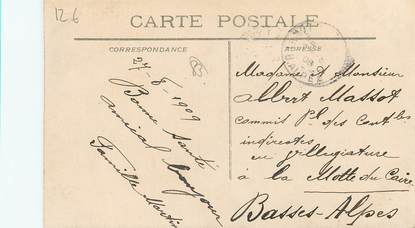 126
CARTE POSTALE
CORRESPONDANCE
ADRESSE
27-8-1909
Bonne santé
amical bonjour
Famille Martin
Madame et Monsieur
Albert Massot
commis Pal des Contbes
indirectes
en villégiature
à la Motte du Caire
Basses-Alpes